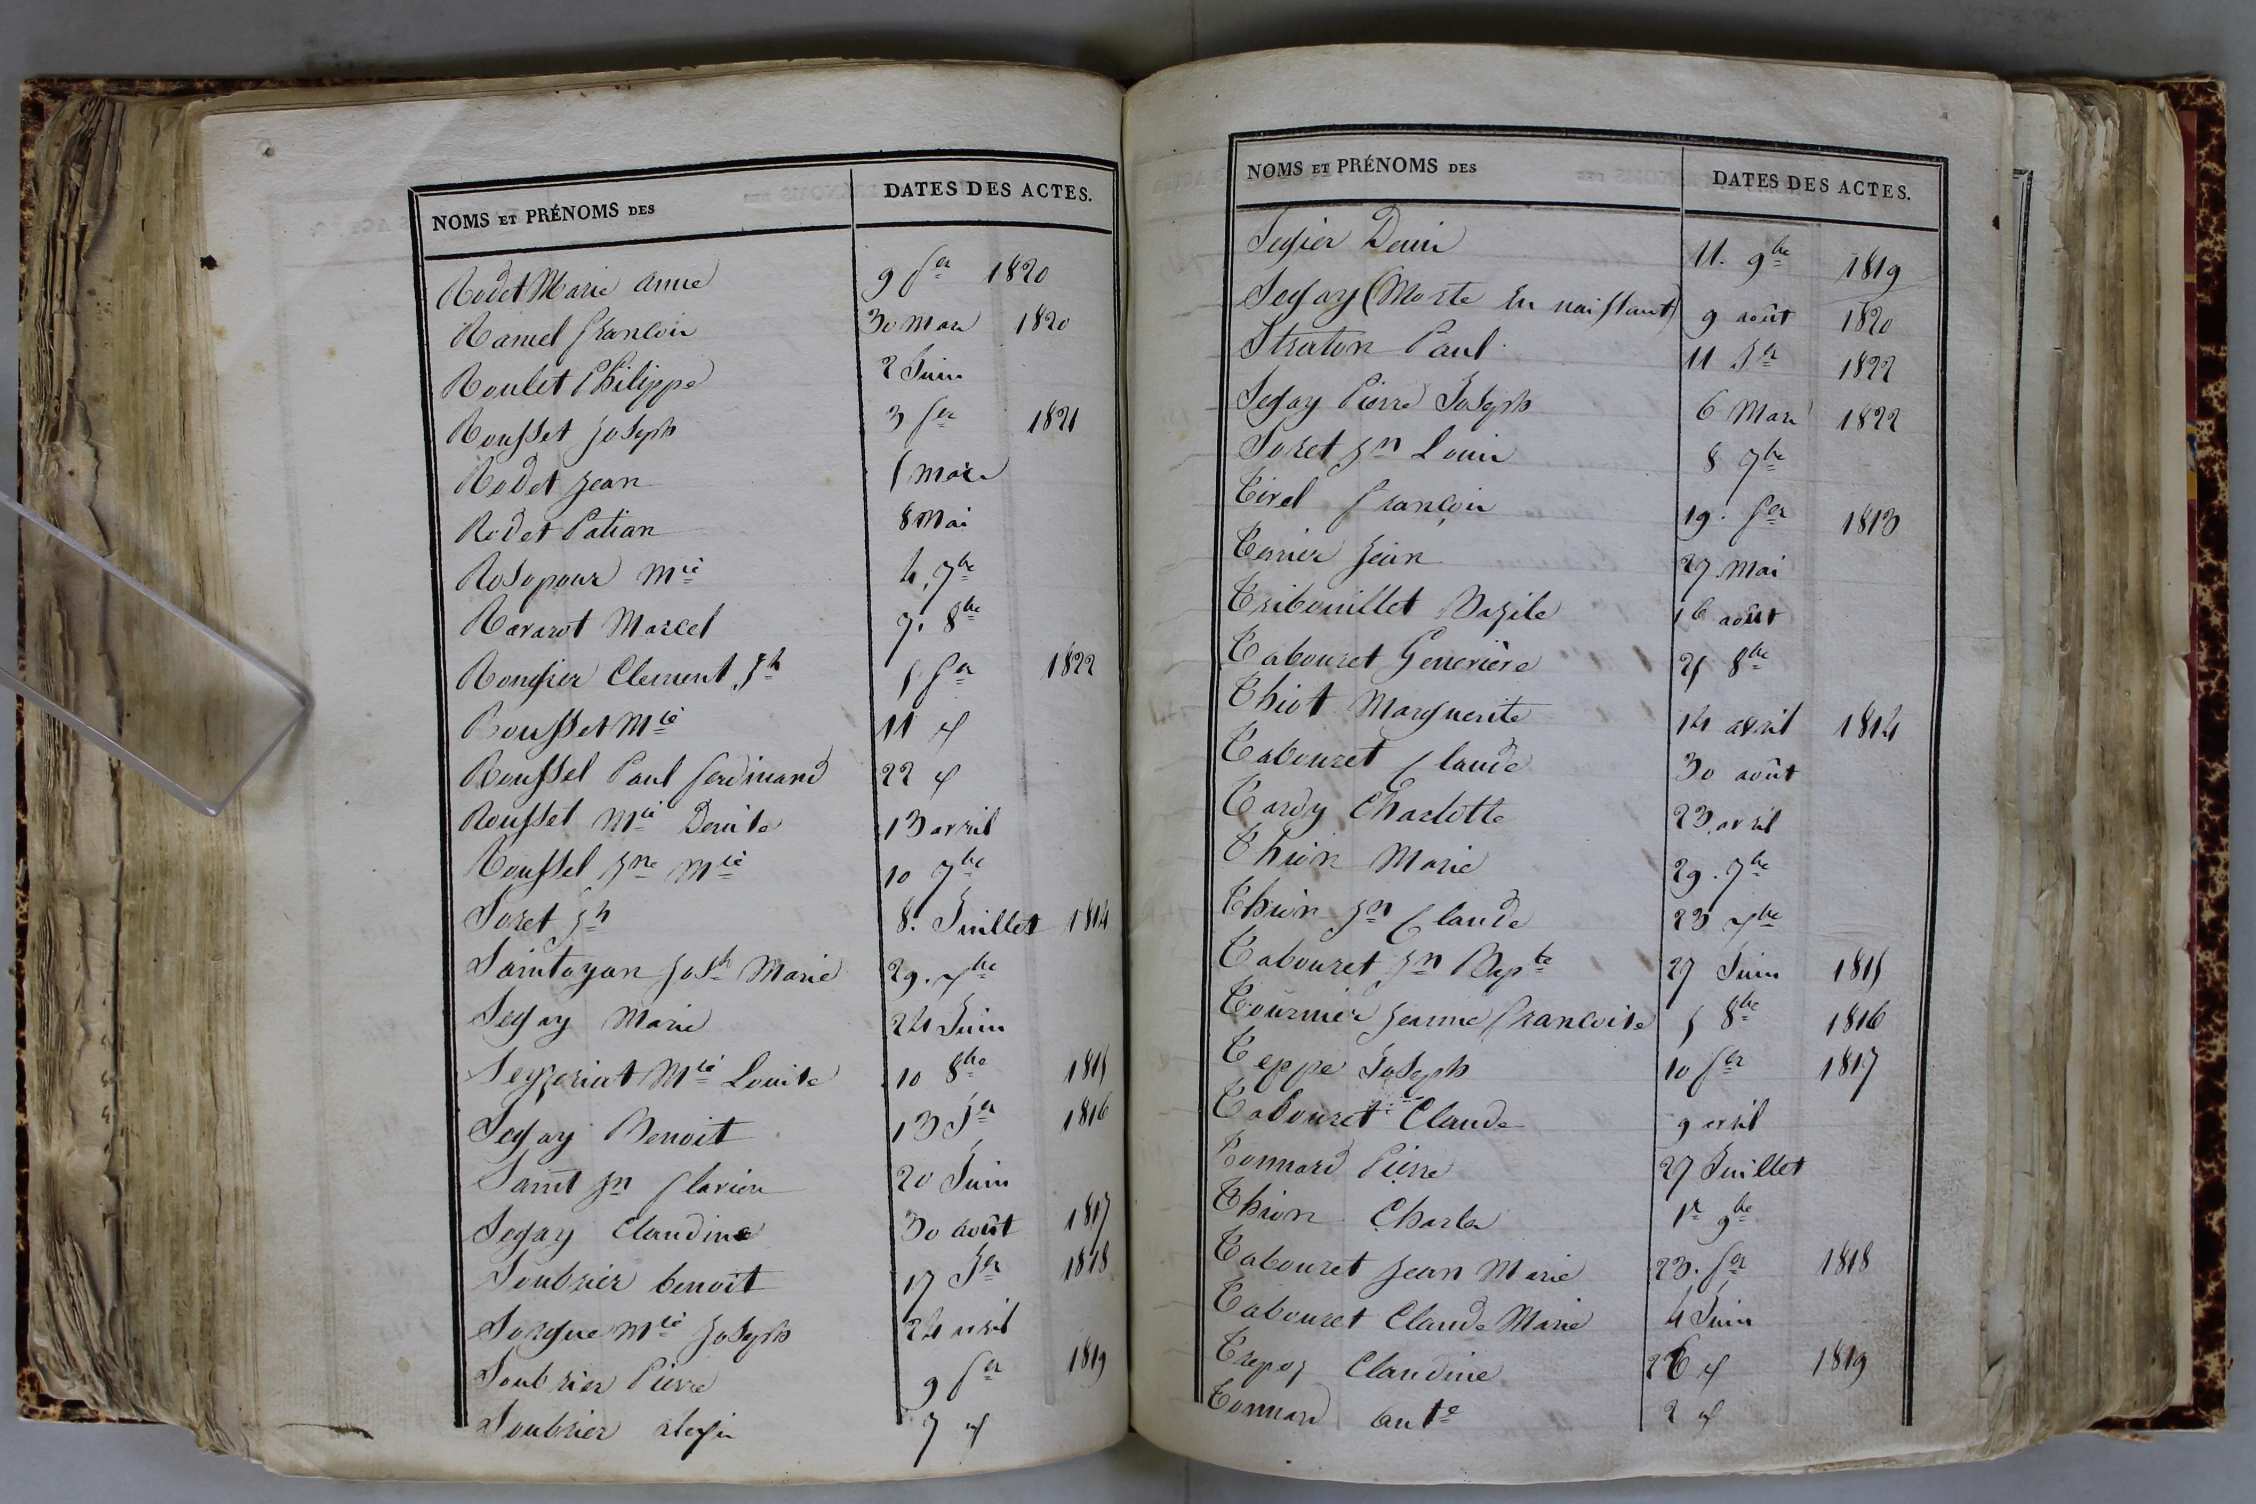 NOMS ET PRÉNOMS DES DATES DES ACTES.
Rodet Marie Anne 9 fer 1820
Ramel françois 30 Mars 1820
Roulet Philippe 2 Juin
Rousset Joseph 3 fer 1821
Rodet Jean 5 mars
Rodet Patian 8 Mai
Mie 4, 7bre
Ravarot Marcel 7. 8bre
Clement Jh 5 fer 1822
Rousset Mie 11 x
Roussel Paul ferdinand 22 x
Rousset Mie Denise 13 avril
Roussel Jne Mie 10 7bre
Soret Jh 8. Juillet 1814
Saintoyan Josh Marie 29. xbre
Segay Marie 24 Juin
Seyzeriat Mie Louise 10 8bre 1815
Segay Benoit 13 Jer 1816
Saint Jn flavien 20 Juin
Segay Claudine 30 août 1817
Soubrier benoit 17 Jer 1818
Sorgue Mie Joseph 24 avril
Soubrier Pierre 9 fer 1819
Soubrier alexis 7 x
NOMS ET PRÉNOMS DES DATES DES ACTES.
Denis 11. 9bre 1819
Segay (Morte En naissant) 9 août 1820
Straton Paul 11 Jer 1822
Segay Pierre Joseph 6 Mars 1822
Soret Jn Louis 8 7bre
Tirel françois 19. fer 1813
Terrier Jean 27. Mai
Tribouillet Bazile 16 août
Tabouret Geneviève 25 8bre
Thiot Marguerite 14 avril 1814
Tabouret Claude 30 août
Tardy Charlotte 23 avril
Thion Marie 29. 7bre
Thion Jn Claude 23 xbre
Tabouret Jn Bapte 27 Juin 1815
Tournier Jeanne françoise 5 8bre 1816
Teppe Joseph 10 fer 1817
Tabouret Claude 9 avril
Tonnard Pierre 27 Juillet
Thion Charles 1r 9bre
Tabouret Jean Marie 23. fer 1818
Tabouret Claude Marie 4 Juin
Trepoz Claudine 26 x 1819
Tonnard Ante 2 x